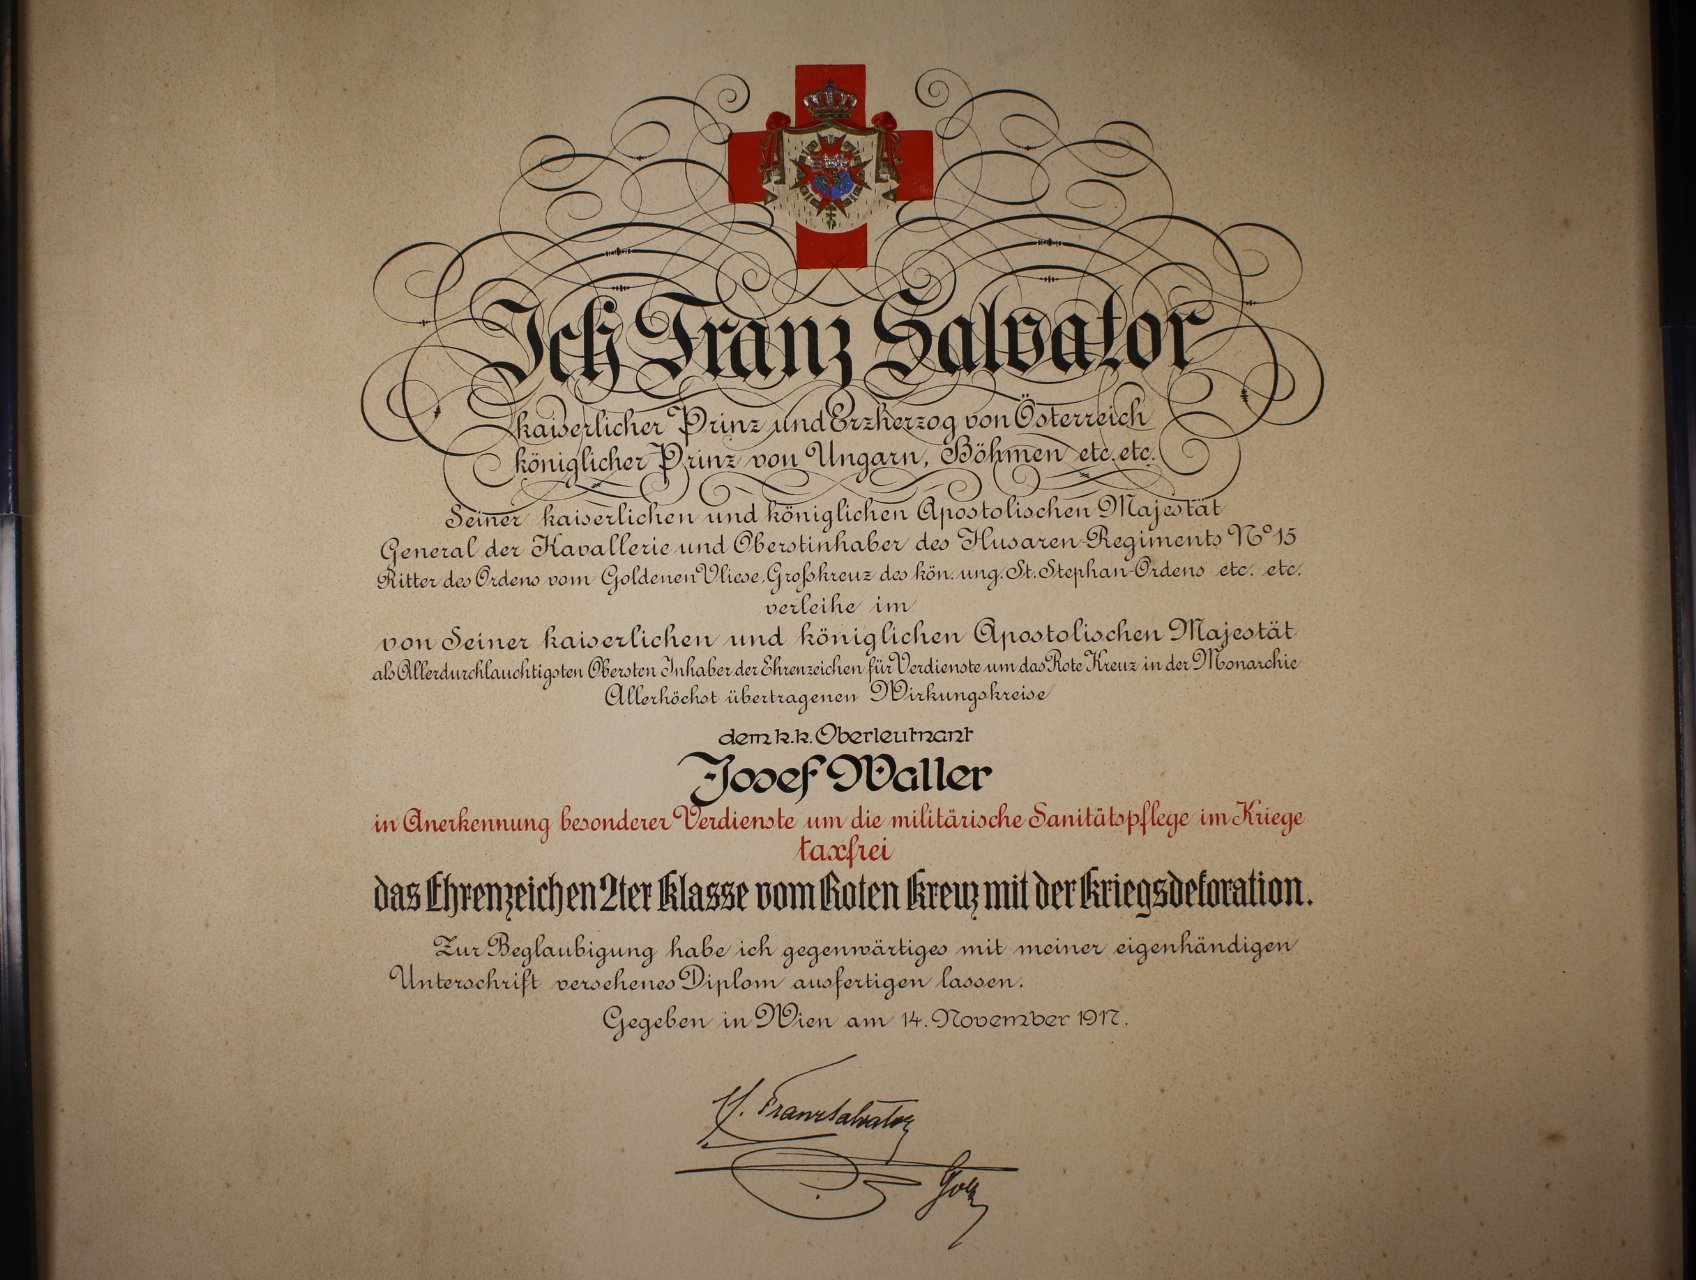 Ich Franz Salvator
kaiserlicher Prinz und Erzherzog von Österreich
königlicher Prinz von Ungarn, Böhmen etc. etc.
Seiner kaiserlichen und königlichen Apostolischen Majestät
General der Kavallerie und Oberstinhaber des Husaren-Regiments No 15
Ritter des Ordens vom Goldenen Vliese, Großkreuz des kön. ung. St. Stephan-Ordens etc. etc.
verleihe im
von Seiner kaiserlichen und königlichen Apostolischen Majestät
als Allerdurchlauchtigsten Obersten Inhaber der Ehrenzeichen für Verdienste um das Rote Kreuz in der Monarchie
Allerhöchst übertragenen Wirkungskreise
dem k.k. Oberleutnant
Josef Waller
in Anerkennung besonderer Verdienste um die militärische Sanitätspflege im Kriege
taxfrei
das Ehrenzeichen 2ter Klasse vom Roten Kreuz mit der Kriegsdekoration.
Zur Beglaubigung habe ich gegenwärtiges mit meiner eigenhändigen
Unterschrift versehenes Diplom ausfertigen lassen.
Gegeben in Wien am 14. November 1917.
Franz Salvator